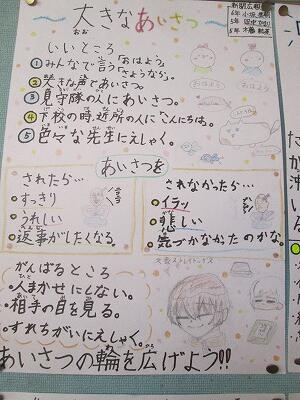 大きなあいさつ
おお
新聞広報
6年
5年
5年
いいところ
①みんなで言う「おはよう。
さようなら。」
②大きな声であいさつ。
③見守隊の人にあいさつ。
④下校の時、近所の人に「こんにちは。」
⑤色々な先生にえしゃく。
おはよう
おはよう
あいさつを
されたら…
・すっきり
・うれしい
・返事がしたくなる
されなかったら…
・イラッ
・悲しい
・気づかなかったのかな。
がんばるところ
・人まかせにしない。
・相手の目を見る。
・すれちがいにえしゃく。
あいさつの輪を広げよう!!